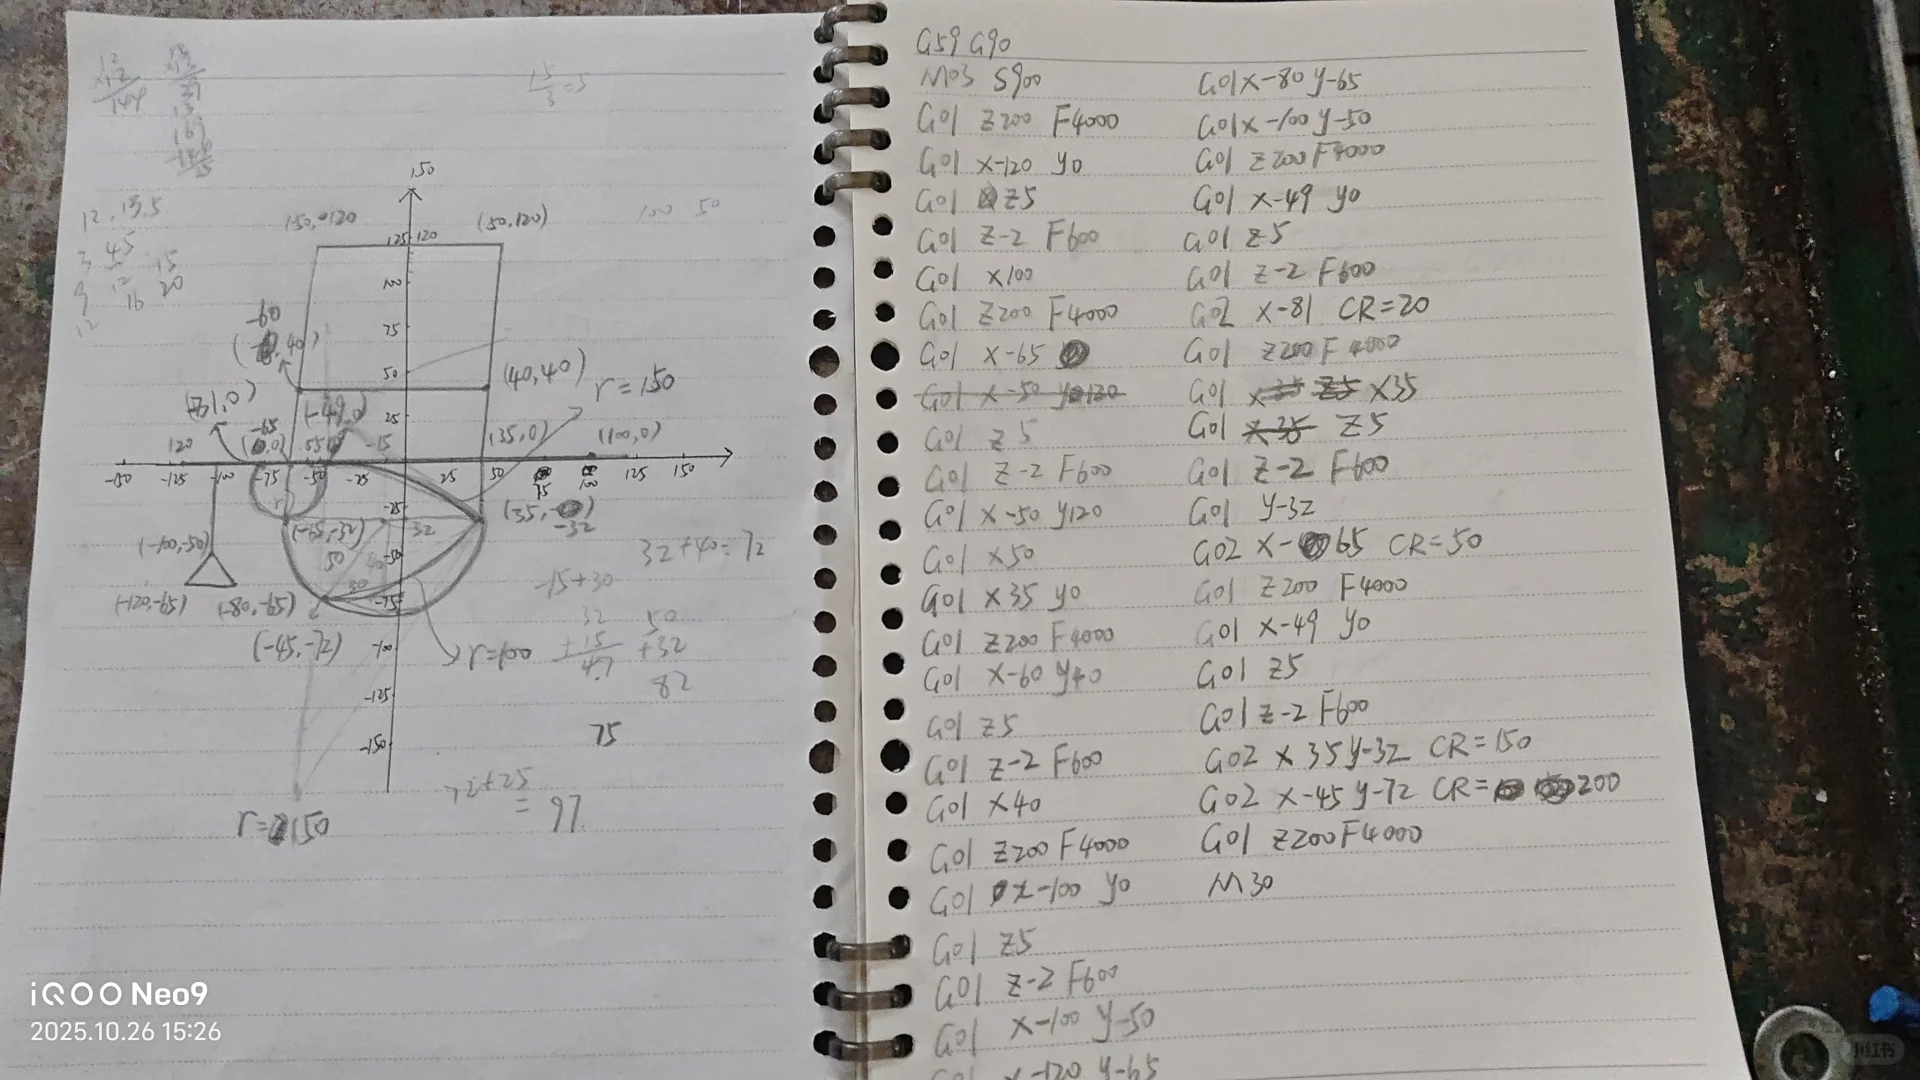 12
×12
144
15/3=5
150
(50,120)
125 120
100 50
12, 13, 5
3 4 5
9 12 15
12 16 20
100
75
-60
50
(40,40)
r=150
25
(-49,0)
-65
-15
(35,0)
(100,0)
120
-150 -125 -100 -75 -50 -25 25 50 75 100 125 150
(35,-32)
-32
(-65,-32)
32
32+40=72
(-100,-50)
50
40
-50
30
-15+30
(-120,-65) (-80,-65)
-75
32
+15
47
50
+32
82
(-45,-72)
-100
-125
75
-150
72+25
=97
r=150
iQOO Neo9
2025.10.26 15:26
G59 G90
M03 S900
G01 Z200 F4000
G01 X-120 y0
G01 Z5
G01 Z-2 F600
G01 X100
G01 Z200 F4000
G01 X-65
G01 X-50 y120
G01 Z5
G01 Z-2 F600
G01 X-50 y120
G01 X50
G01 X35 y0
G01 Z200 F4000
G01 X-60 y40
G01 Z5
G01 Z-2 F600
G01 X40
G01 Z200 F4000
G01 X-100 y0
G01 Z5
G01 Z-2 F600
G01 X-100 y-50
X-120 y-65
G01 X-80 y-65
G01 X-100 y-50
G01 Z200 F4000
G01 X-49 y0
G01 Z5
G01 Z-2 F600
G02 X-81 CR=20
G01 Z200 F4000
G01 X35 Z5 X35
G01 X35 Z5
G01 Z-2 F600
G01 y-32
G02 X-65 CR=50
G01 Z200 F4000
G01 X-49 y0
G01 Z5
G01 Z-2 F600
G02 X35 y-32 CR=150
G02 X-45 y-72 CR=200
G01 Z200 F4000
M30
小红书